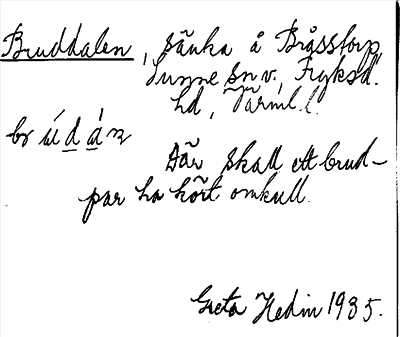 Bruddalen, sänka å Bråsstorp,
Sunne sn v., Fryksd.
hd, Värml. l.
br ú d á n
Där skall ett brud-
par ha kört omkull.
Greta Hedin 1935.